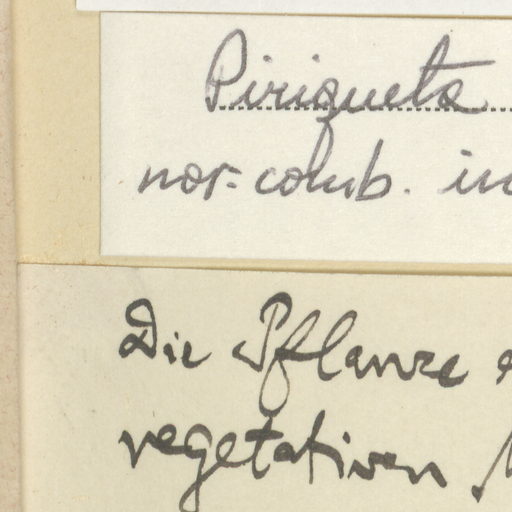 Piriqueta
nov. comb. in
Die Pflanze
vegetativen